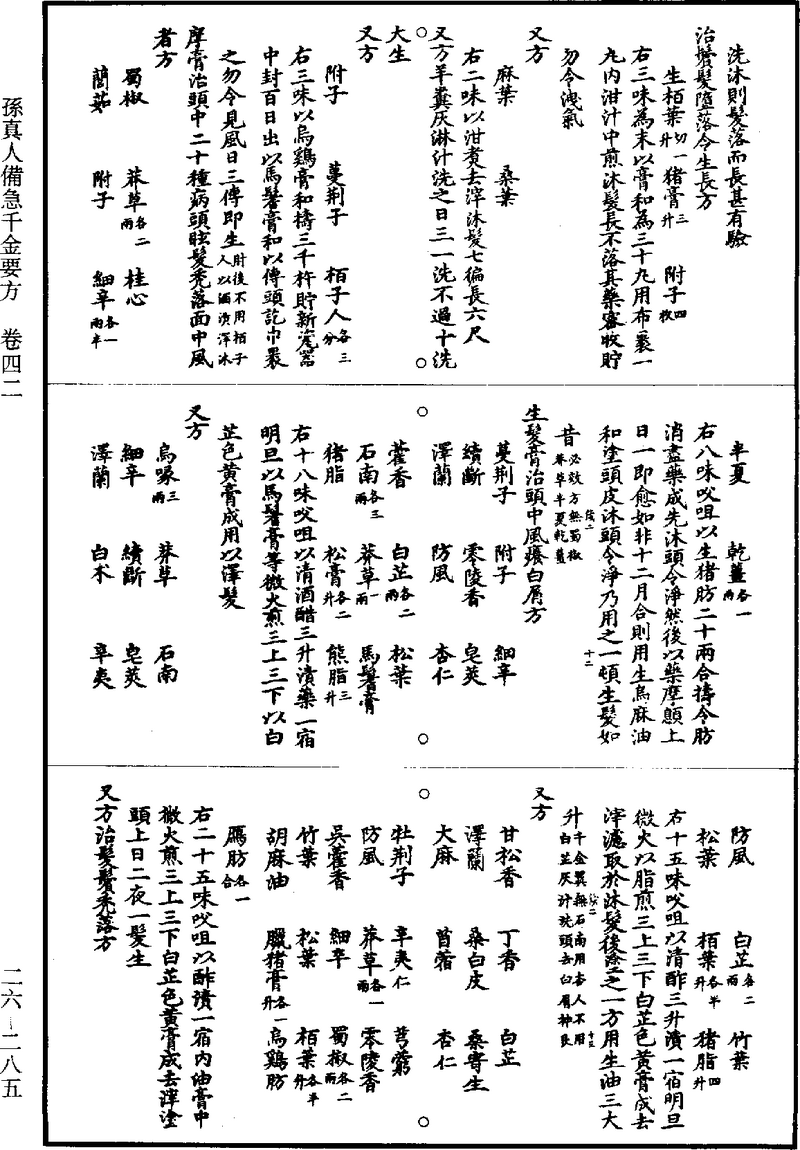 洗沐則髮落而長甚有驗
治鬢髮墮落令生長方
生栢葉切一升 猪膏三升 附子四枚
右三味為末以膏和為三十丸用布裹一
丸內泔汁中煎沐髮長不落其藥密收貯
勿令洩氣
又方
麻葉 桑葉
右二味以泔煑去滓沐髮七徧長六尺
又方羊糞灰淋汁洗之日三一洗不過十洗
大生
又方
附子 蔓荆子 栢子人各三分
右三味以烏鷄膏和擣三千杵貯新瓷器
中封百日出以馬鬐膏和以傅頭訖巾裹
之勿令見風日三傅即生肘後不用栢子人以酒漬澤沐
摩膏治頭中二十種病頭眩髮禿落面中風
者方
蜀椒 莽草各二兩 桂心
䕡茹 附子 細辛各一兩半
半夏 乾薑各一兩
右八味㕮咀以生猪肪二十兩合擣令肪
消盡藥成先沐頭令淨然後以藥摩顖上
日一即愈如非十二月合則用生烏麻油
和塗頭皮沐頭令淨乃用之一頓生髮如
昔必效方無蜀椒莽草半夏乾薑
後二
十二
生髮膏治頭中風癢白屑方
蔓荆子 附子 細辛
續斷 零陵香 皂莢
澤蘭 防風 杏仁
藿香 白芷各二兩 松葉
石南各三兩 莽草一兩 馬鬐膏
猪脂 松膏各二升 熊脂三升
右十八味㕮咀以清酒醋三升漬藥一宿
明旦以馬鬐膏等微火煎三上三下以白
芷色黃膏成用以澤髮
又方
烏喙三兩 莽草 石南
細辛 續斷 皂莢
澤蘭 白朮 辛夷
防風 白芷各二兩 竹葉
松葉 栢葉各半升 猪脂四升
右十五味㕮咀以清酢三升漬一宿明旦
微火以脂煎三上三下白芷色黃膏成去
滓濾取於沐髮後塗之一方用生油三大
升千金翼無石南用杏人不用白芷灰汁洗頭去白屑神良
後二
十三
又方
甘松香 丁香 白芷
澤蘭 桑白皮 桑寄生
大麻 苜蓿 杏仁
牡荆子 辛夷仁 芎藭
防風 莽草各一兩 零陵香
吳藿香 細辛 蜀椒各二兩
竹葉 松葉 栢葉各半升
胡麻油 臘猪膏各一升 烏鷄肪
鴈肪各一合
右二十五味㕮咀以酢漬一宿內油膏中
微火煎三上三下白芷色黃膏成去滓塗
頭上日二夜一髮生
又方治髮鬢禿落方
孫真人備急千金要方 卷四二
二六—二八五